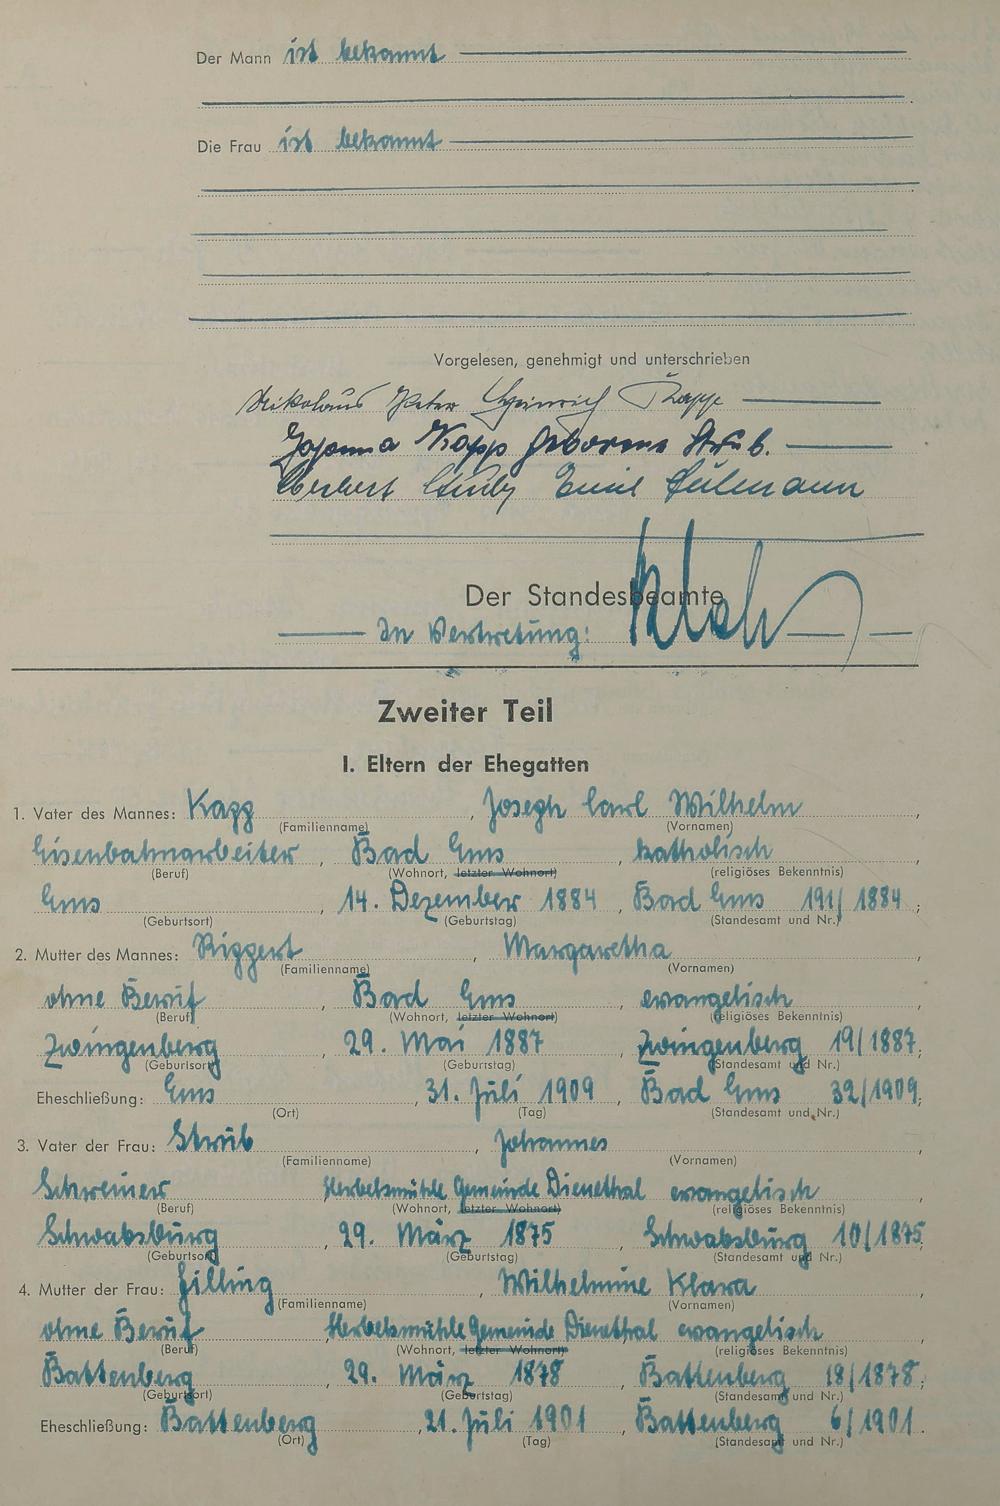 Der Mann ist bekannt
Die Frau ist bekannt
Vorgelesen, genehmigt und unterschrieben
Nikolaus Peter Heinrich Kapp
Johanna Kapp geborene Strub.
Herbert Emil
Der Standesbeamte
In Vertretung:
Zweiter Teil
I. Eltern der Ehegatten
1. Vater des Mannes: Kapp, Joseph Carl Wilhelm,
(Familienname) (Vornamen)
Eisenbahnarbeiter, Bad Ems, katholisch
(Beruf) (Wohnort, letzter Wohnort) (religiöses Bekenntnis)
Ems, 14. Dezember 1884, Bad Ems 191/1884;
(Geburtsort) (Geburtstag) (Standesamt und Nr.)
2. Mutter des Mannes: Riggert, Margaretha,
(Familienname) (Vornamen)
ohne Beruf, Bad Ems, evangelisch,
(Beruf) (Wohnort, letzter Wohnort) (religiöses Bekenntnis)
Zwingenberg, 29. Mai 1887, Zwingenberg 19/1887;
(Geburtsort) (Geburtstag) (Standesamt und Nr.)
Eheschließung: Ems, 31. Juli 1909, Bad Ems 32/1909;
(Ort) (Tag) (Standesamt und Nr.)
3. Vater der Frau: Strub, Johannes,
(Familienname) (Vornamen)
Schreiner Herbelsmühle Gemeinde Dienethal evangelisch,
(Beruf) (Wohnort, letzter Wohnort) (religiöses Bekenntnis)
Schwabsburg, 29. März 1875, Schwabsburg 10/1875;
(Geburtsort) (Geburtstag) (Standesamt und Nr.)
4. Mutter der Frau: Filling, Wilhelmine Klara,
(Familienname) (Vornamen)
ohne Beruf Herbelsmühle Gemeinde Dienethal evangelisch,
(Beruf) (Wohnort, letzter Wohnort) (religiöses Bekenntnis)
Battenberg, 29. März 1878, Battenberg 18/1878;
(Geburtsort) (Geburtstag) (Standesamt und Nr.)
Eheschließung: Battenberg, 21. Juli 1901, Battenberg 6/1901.
(Ort) (Tag) (Standesamt und Nr.)